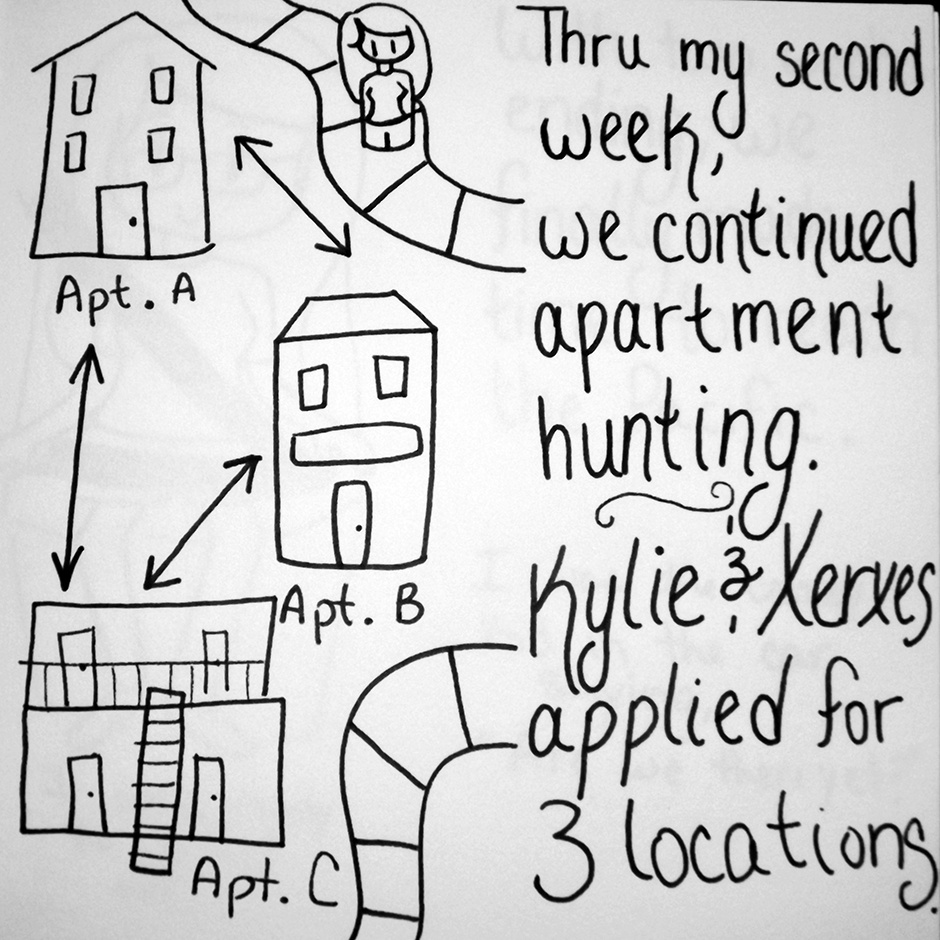 Thru my second
week,
we continued
apartment
hunting.
Kylie & Xerxes
applied for
3 locations.
Apt. A
Apt. B
Apt. C